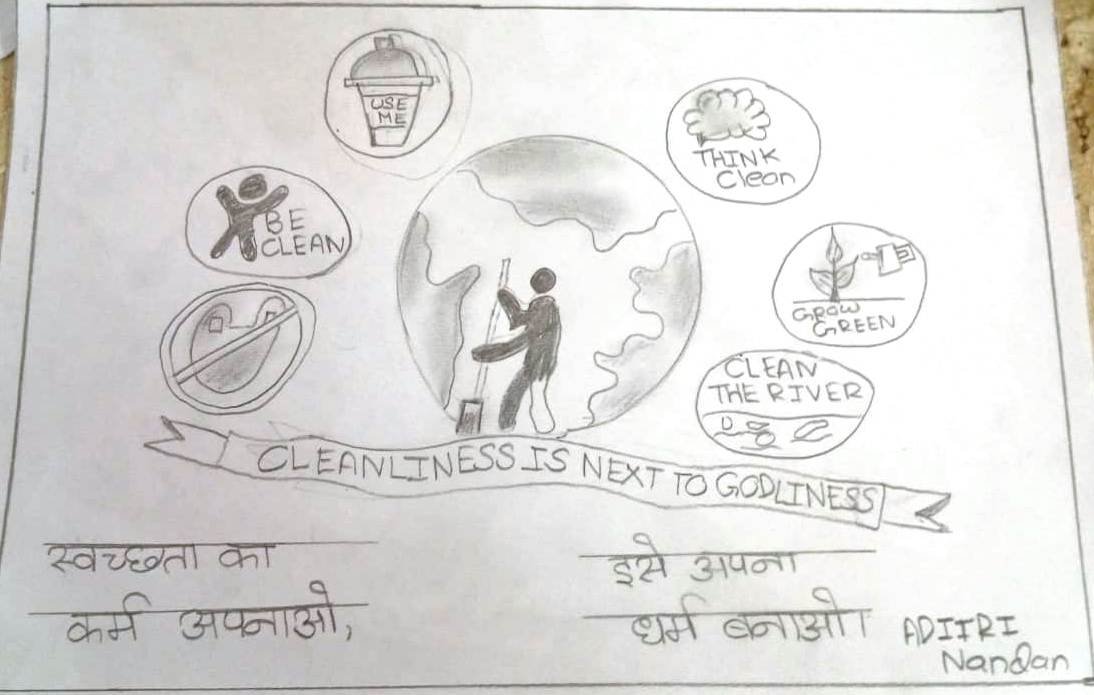 USE
ME
THINK
Clean
BE
CLEAN
GROW
GREEN
CLEAN
THE RIVER
CLEANLINESS IS NEXT TO GODLINESS
स्वच्छता का
कर्म अपनाओ,
इसे अपना
धर्म बनाओ।
ADITRI
Nandan